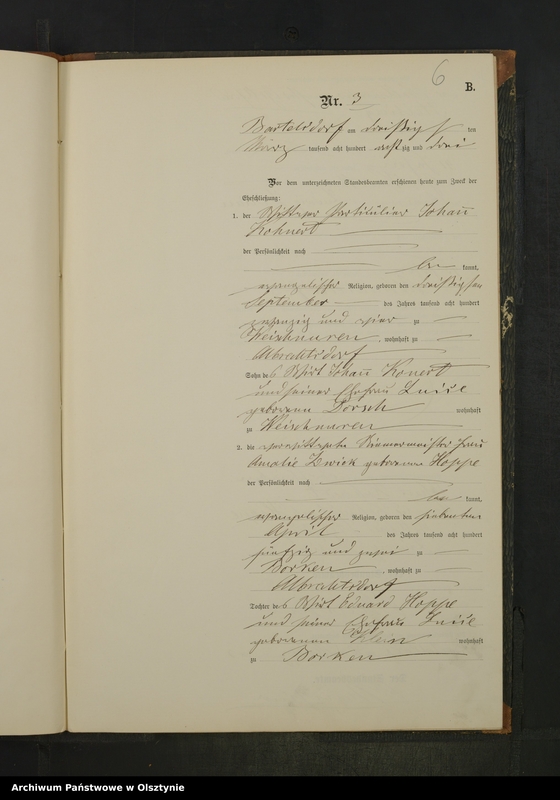 6
B.
Nr. 3
Bartelsdorf am dreißigsten
März tausend acht hundert achtzig und drei
Vor dem unterzeichneten Standesbeamten erschienen heute zum Zweck der
Eheschließung:
1. der Johann
Kohnert
der Persönlichkeit nach
be kannt,
evangelischer Religion, geboren den dreißigsten
September des Jahres tausend acht hundert
zwanzig und vier zu
Weischnuren, wohnhaft zu
Albrechtsdorf
Sohn des Wirt Johann Konert
und seiner Ehefrau Luise
geborenen Dorsch wohnhaft
zu Weischnuren
2. die Frau
Amalie Zwick geborene Hoppe
der Persönlichkeit nach
be kannt,
evangelischer Religion, geboren den siebenten
April des Jahres tausend acht hundert
fünfzig und zwei zu
Borken, wohnhaft zu
Albrechtsdorf
Tochter des Wirt Eduard Hoppe
und seiner Ehefrau Luise
geborenen Klein wohnhaft
zu Borken
Archiwum Państwowe w Olsztynie